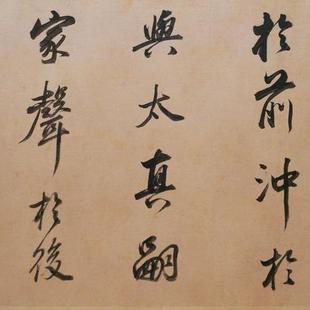 於前沖於
與太真嗣
家聲於後